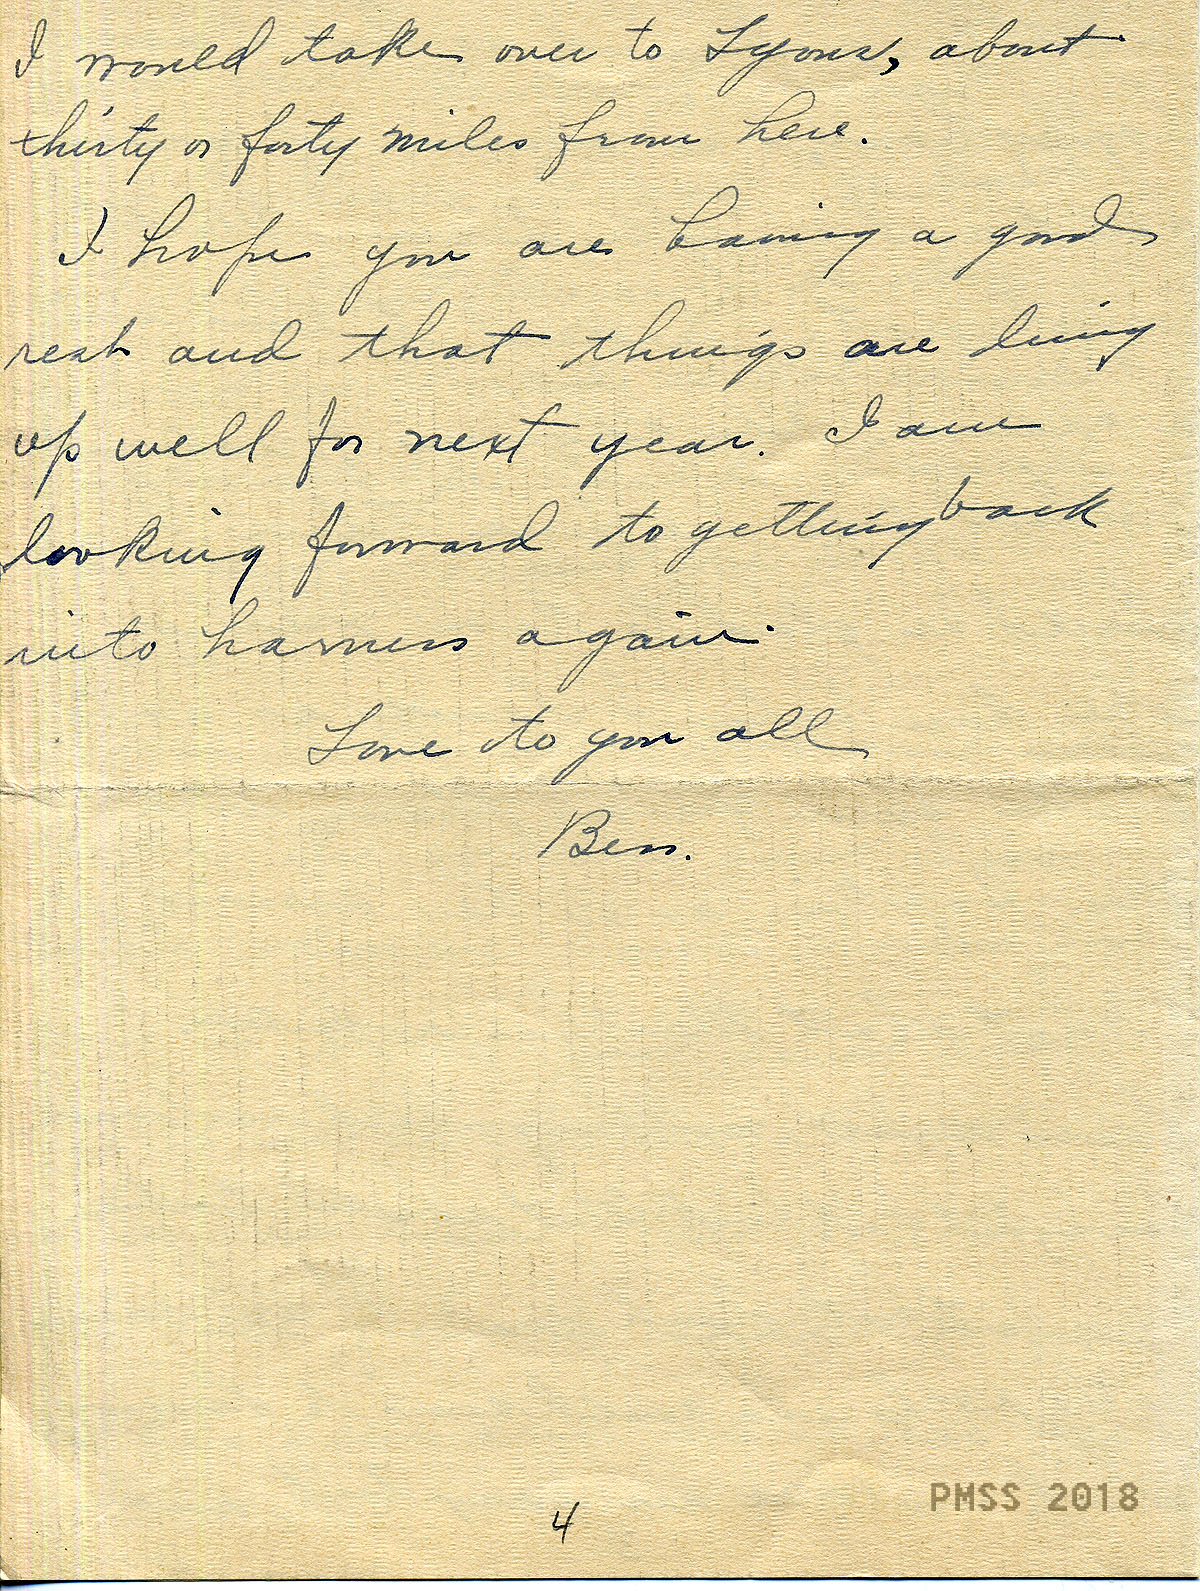 I would take over to Lyons, about
thirty or forty miles from here.
I hope you are having a good
rest and that things are lining
up well for next year. I am
looking forward to getting back
into harness again.
Love to you all
Bess.
4
PMSS 2018